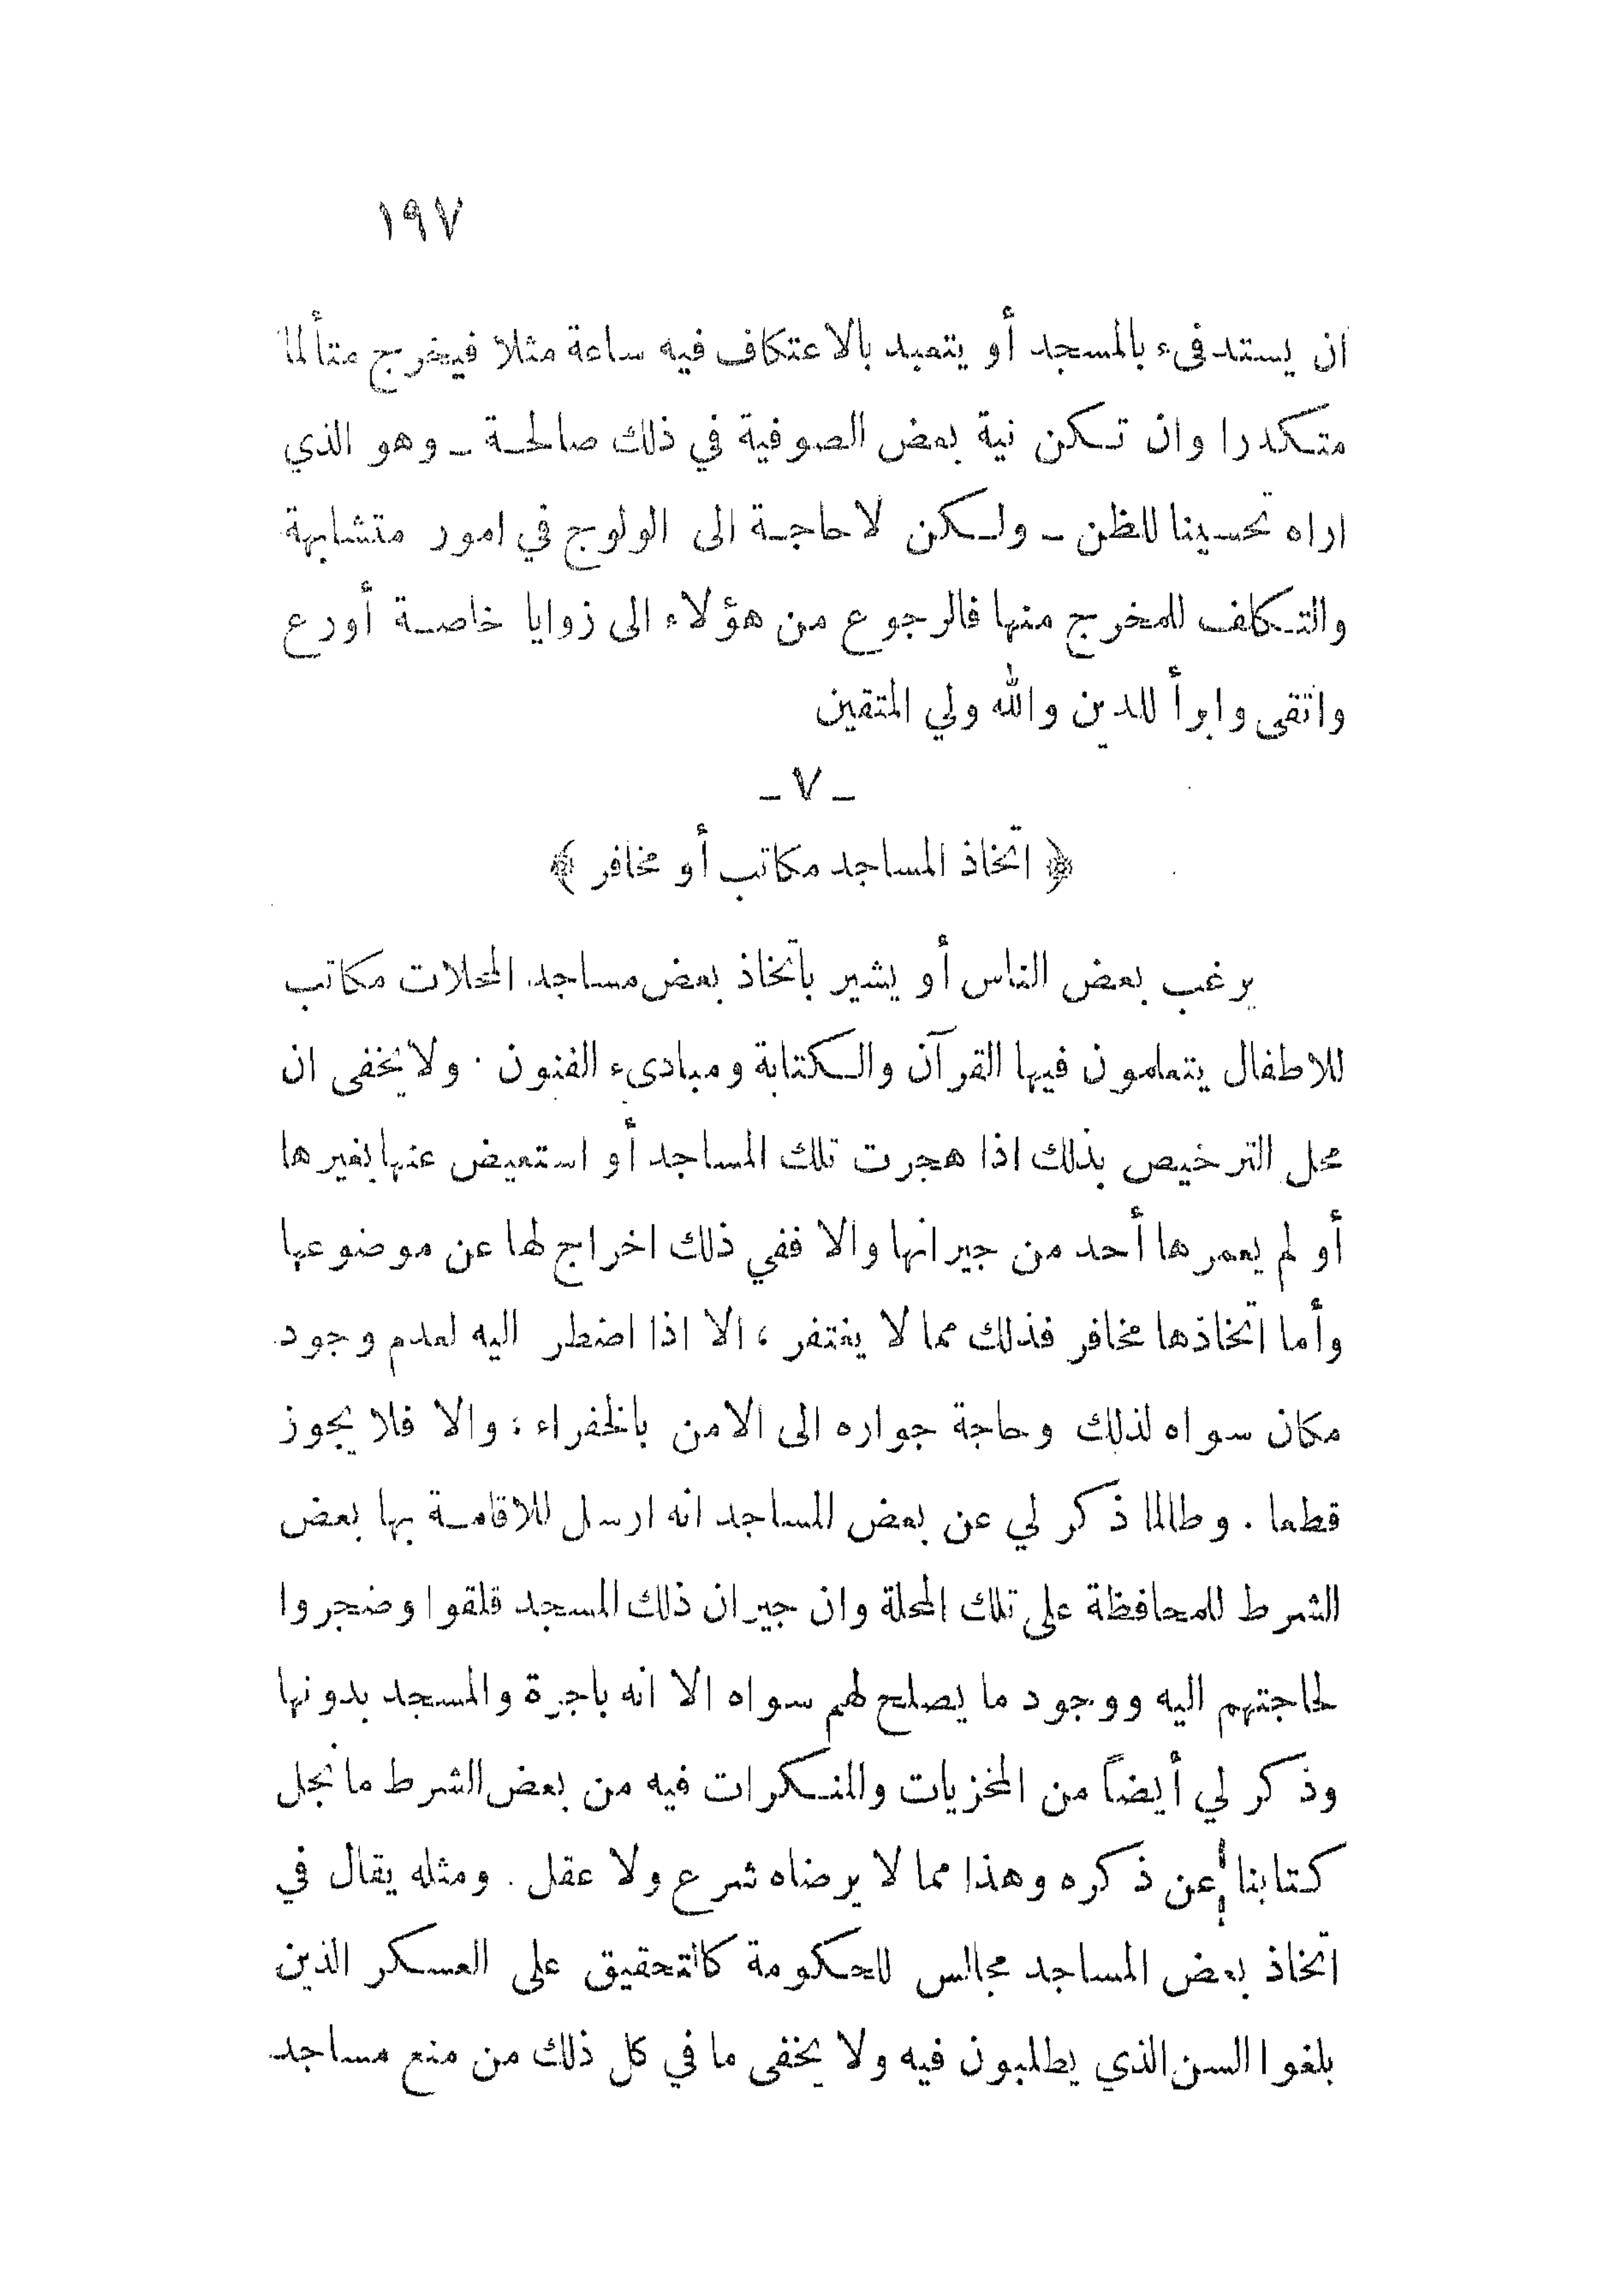 ١٩٧
ان يستدفىء بالمسجد أو يتعبد بالاعتكاف فيه ساعة مثلا فيخرج متألماً
متكدرا وان تكن نية بعض الصوفية في ذلك صالحة ــ وهو الذي
اراه تحسينا للظن ــ ولكن لا حاجة الى الولوج في امور متشابهة
والتكلف للمخرج منها فالرجوع من هؤلاء الى زوايا خاصة أورع
واتقى وابرأ للدين والله ولي المتقين
ـ ٧ ـ
﴿ اتخاذ المساجد مكاتب أو مخافر ﴾
يرغب بعض الناس أو يشير باتخاذ بعض مساجد المحلات مكاتب
للاطفال يتعلمون فيها القرآن والكتابة ومبادىء الفنون . ولا يخفى ان
محل الترخيص بذلك اذا هجرت تلك المساجد أو استعيض عنها بغيرها
أو لم يعمرها أحد من جيرانها والا ففي ذلك اخراج لها عن موضوعها
وأما اتخاذها مخافر فذلك مما لا يغتفر ، الا اذا اضطر اليه لعدم وجود
مكان سواه لذلك وحاجة جواره الى الامن بالخفراء : والا فلا يجوز
قطعا . وطالما ذكر لي عن بعض المساجد انه ارسل للاقامة بها بعض
الشرط للمحافظة على تلك المحلة وان جيران ذلك المسجد قلقوا وضجروا
لحاجتهم اليه ووجود ما يصلح لهم سواه الا انه باجرة والمسجد بدونها
وذكر لي أيضاً من المخزيات والمنكرات فيه من بعض الشرط ما نجل
كتابنا عن ذكره وهذا مما لا يرضاه شرع ولا عقل . ومثله يقال في
اتخاذ بعض المساجد مجالس للحكومة كالتحقيق على العسكر الذين
بلغوا السن الذي يطلبون فيه ولا يخفى ما في كل ذلك من منع مساجد